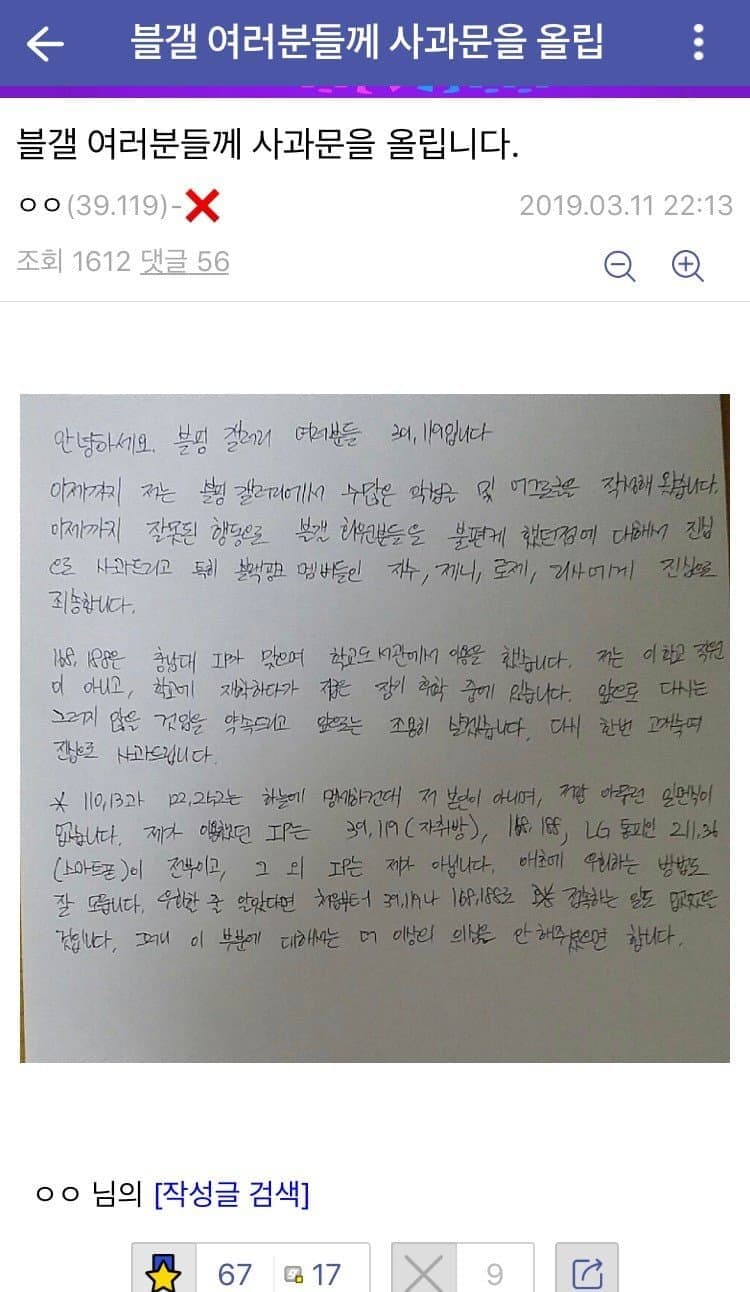 블갤 여러분들께 사과문을 올립
블갤 여러분들께 사과문을 올립니다.
ㅇㅇ(39.119)-❌ 2019.03.11 22:13
조회 1612 댓글 56
안녕하세요. 블핑 갤러리 여러분들 39,119입니다
이제까지 저는 블핑 갤러리에서 수많은 악성글 및 어그로글을 작성해 왔습니다.
이제까지 잘못된 행동으로 블갤 회원분들을 불편케 했던점에 대해서 진심
으로 사과드리고 특히 블랙핑크 멤버들인 지수, 제니, 로제, 리사에게 진심으로
죄송합니다.
168, 188은 충남대 IP가 맞으며 학교도서관에서 이용을 했습니다. 저는 이 학교 직원
이 아니고, 학교에 재학하다가 지금은 장기 휴학 중에 있습니다. 앞으로 다시는
그러지 않을 것임을 약속드리고 앞으로는 조용히 살겠습니다. 다시 한번 고개숙여
진심으로 사과드립니다.
* 110,13과 122,252는 하늘에 맹세하건대 저 본인이 아니며, 저랑 아무런 일면식이
없습니다. 제가 이용했던 IP는 39,119(자취방), 168,188, LG 통피인 211,36
(스마트폰)이 전부이고, 그 외 IP는 제가 아닙니다. 애초에 우회하는 방법도
잘 모릅니다. 우회할 줄 알았다면 처음부터 39,119나 168,188로 접속하는 일도 없었을
것입니다. 그러니 이 부분에 대해서는 더 이상의 의심을 안 해주셨으면 합니다.
ㅇㅇ 님의 [작성글 검색]
67 17 9